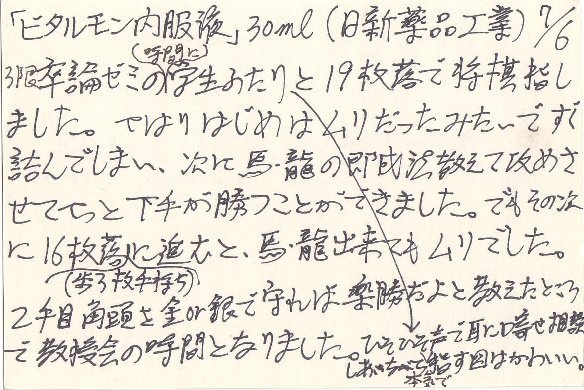 「ビタルモン内服液」30ml(日新薬品工業)7/6
(時間に)
3限卒論ゼミの学生ふたりと19枚落で将棋指し
ました。やはりはじめはムリだったみたいですぐ
詰んでしまい、次に馬・龍の即成法教えて攻めさ
せてやっと下手が勝つことができました。でもその次
に16枚落に進むと、馬・龍出来てもムリでした。
(歩3枚手持ち)
2手目角頭を金or銀で守れば楽勝だよと教えたところ
で教授会の時間となりました。ひそひそ声で耳に口寄せ相談
しあいながら指す図はかわいい。
本気で